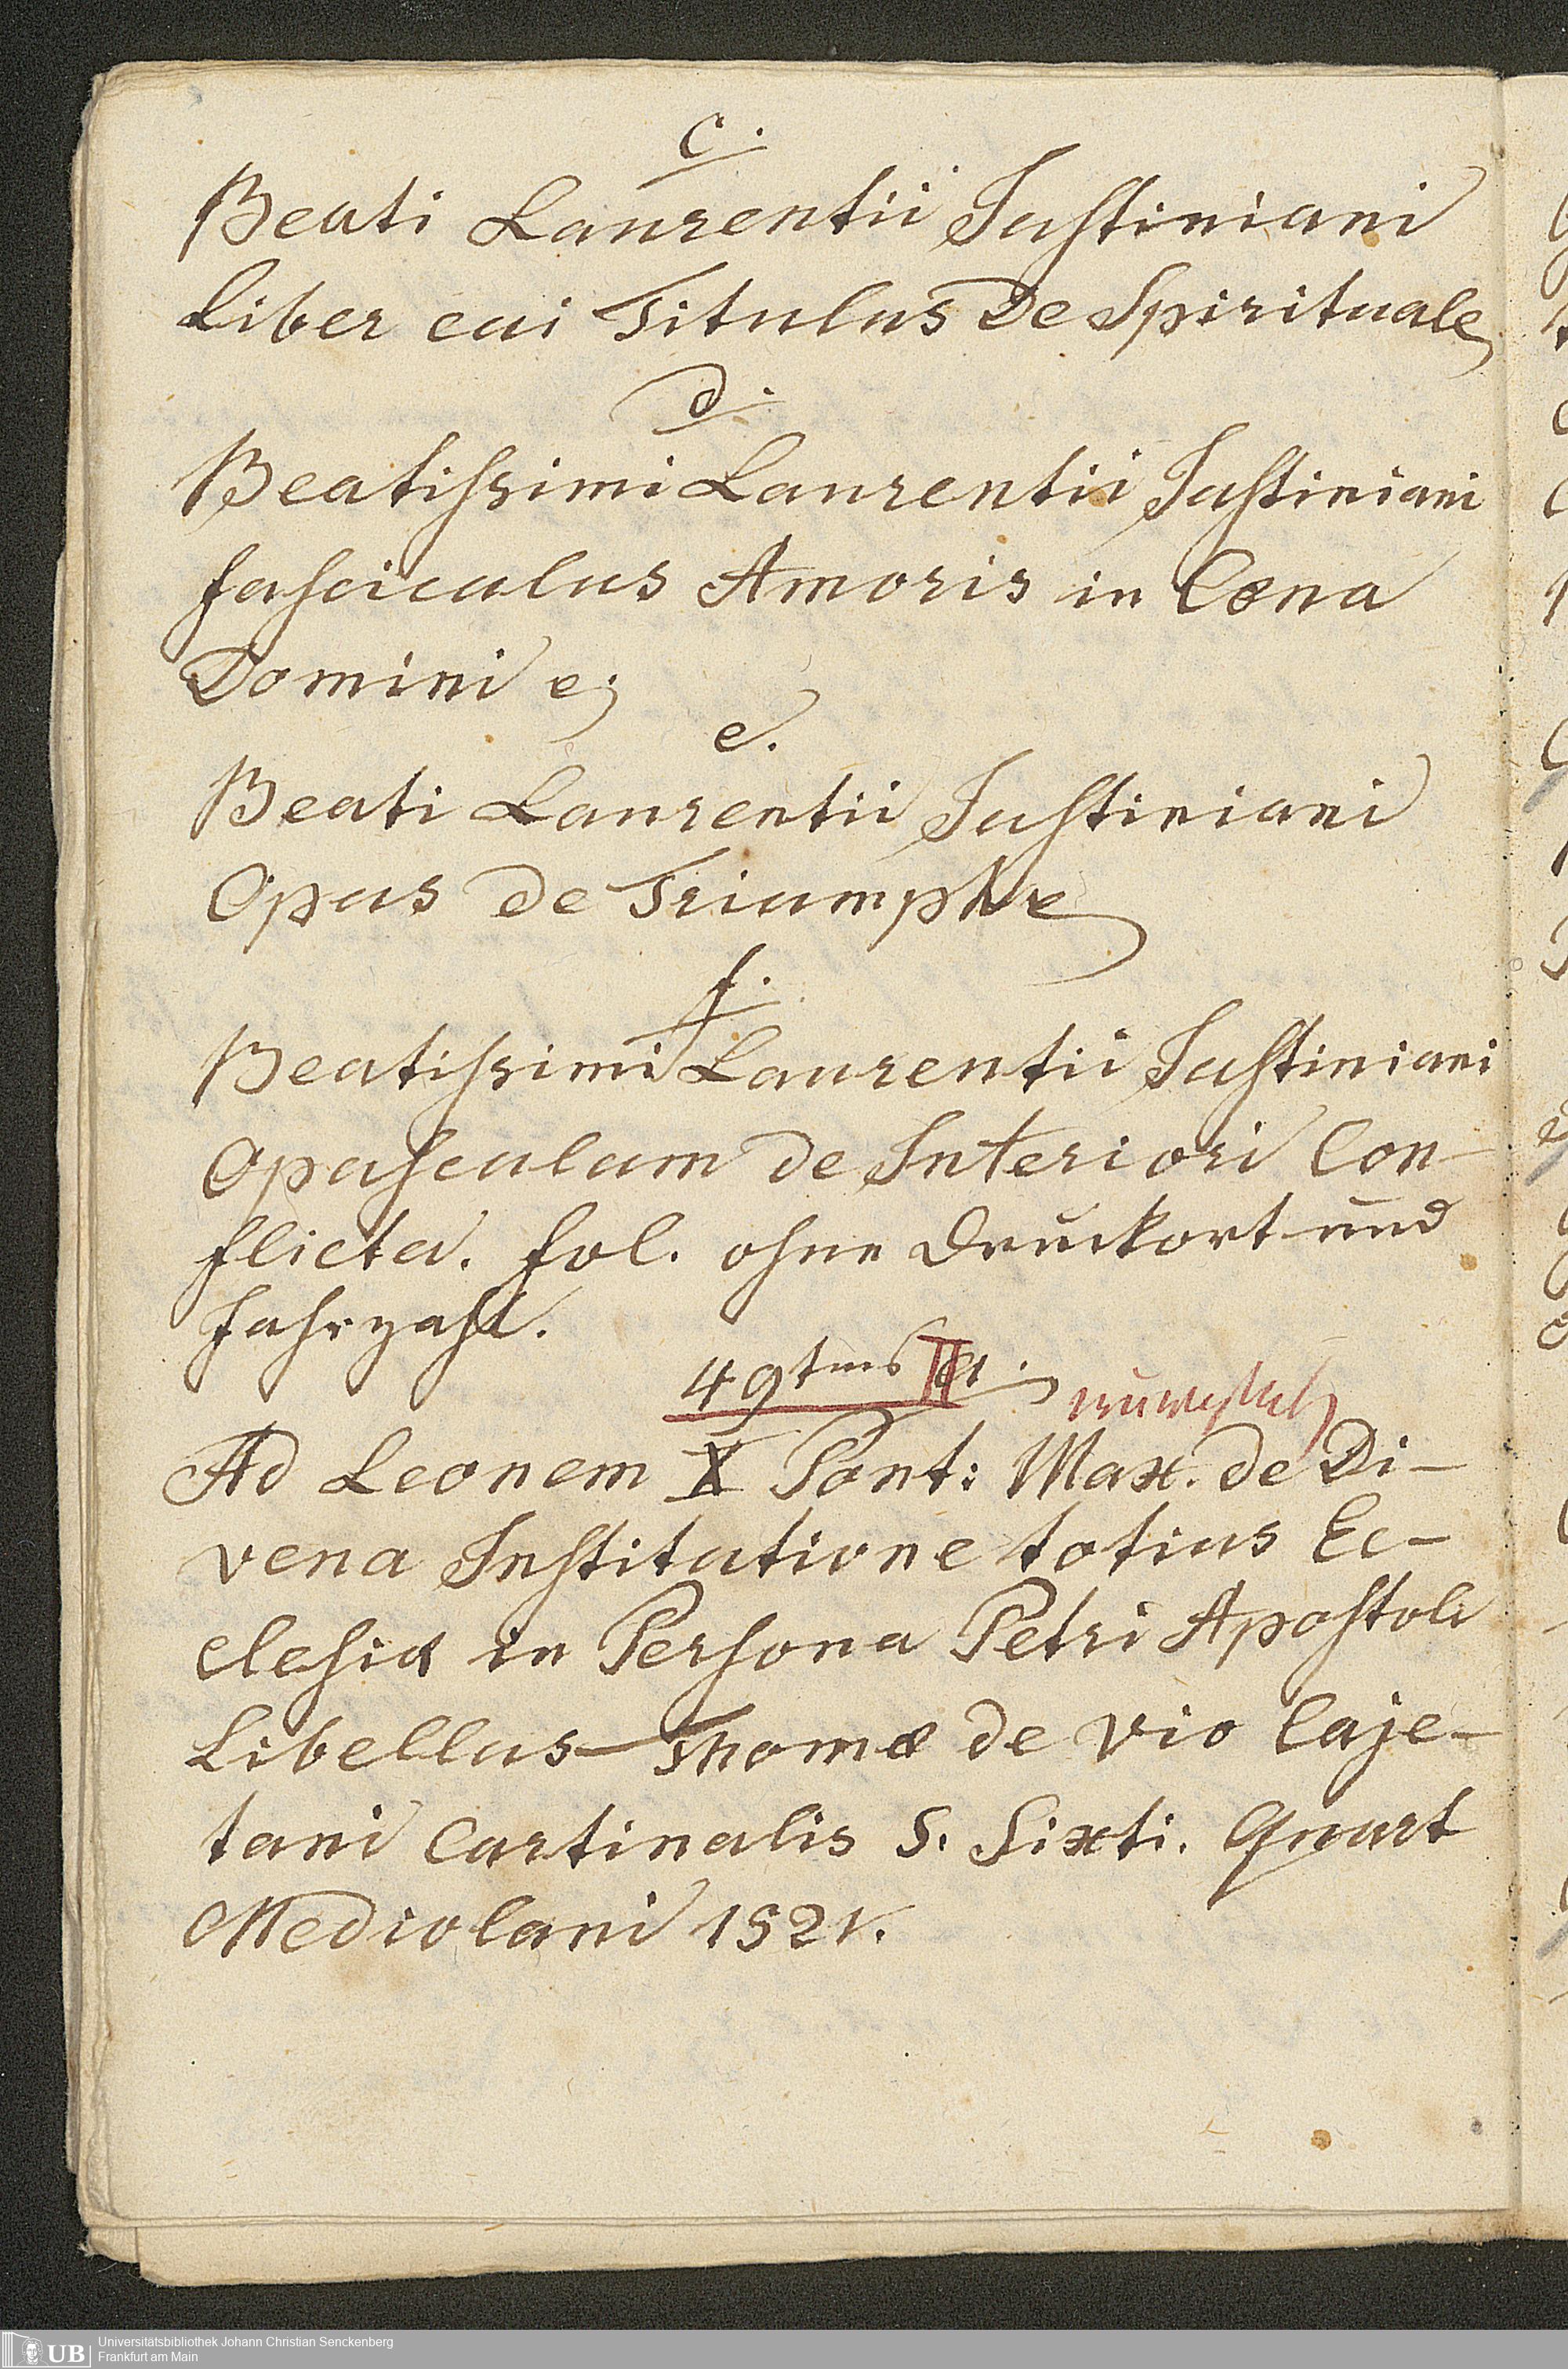 c.
Beati Laurentii Justiniani
Liber cui Titulus De Spirituale
d.
Beatissimi Laurentii Justiniani
fasciculus Amoris in Cœna
Domini
e.
Beati Laurentii Justiniani
Opus de Triumphe
f.
Beatissimi Laurentii Justiniani
Opusculum de Interiori Con-
flictu. fol. ohne Druckort und
Jahrzahl.
49tens II
Ad Leonem X Pont: Max. de Di-
vena Institutione totius Ec-
clesiæ in Persona Petri Apostoli
Libellus Thomæ de Vio Caje-
tani Cartinalis S. Sixti. Quart
Mediolani 1521.
UB Universitätsbibliothek Johann Christian Senckenberg
Frankfurt am Main